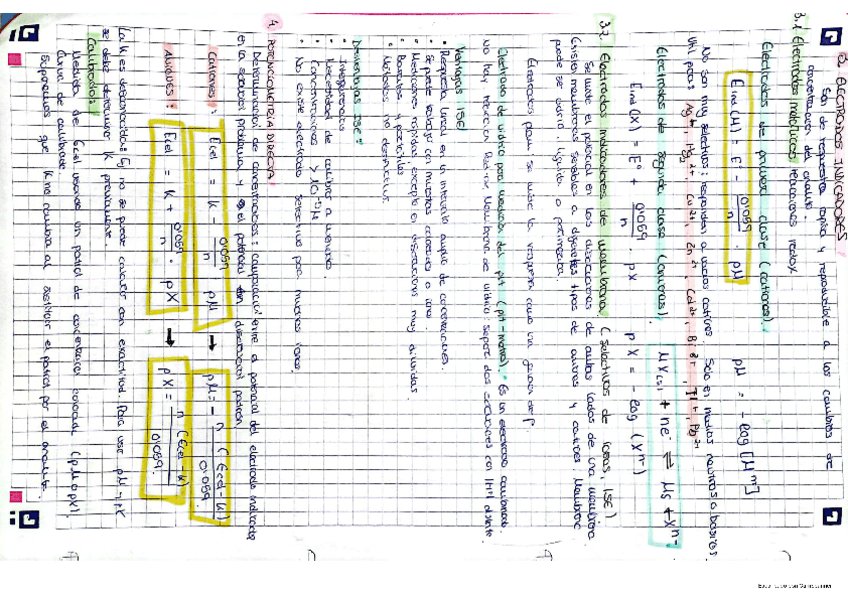 2. ELECTRODOS INDICADORES
Son de respuesta rápida y reproducible a los cambios de
concentración del analito.
3.1 Electrodos metálicos: reacciones redox
Electrodos de primera clase (cationes).
Eind (M) = Eº - 0'059/n · pM pM = - log [Mn+]
No son muy selectivos: responden a varios cationes. Solo en medios neutros o básicos
Util para: Ag+, Hg2+, Cu2+, Zn2+, Cd2+, Bi3+, Tl+, Pb2+
Electrodos de segunda clase (aniones). MX(s) + ne- ⇌ Ms + Xn-
Eind (X) = Eº + 0'059/n · pX pX = - log (Xn-)
3.2. Electrodos indicadores de membrana. (selectivos de iones, ISE)
Se mide el potencial en las disoluciones de ambos lados de una membrana
Existen membranas sensibles a diferentes tipos de aniones y cationes. Membrana
puede ser vidrio, líquida o polimérica.
Electrodo de vidrio para medida del pH (pH-metro). Es un electrodo combinado.
No hay reacción Redox. Membrana de vidrio: separa dos disoluciones con [H+] distinta.
Ventajas ISE
• Respuesta lineal en un intervalo amplio de concentraciones.
• Se puede trabajar con muestras coloreadas o
• Mediciones rápidas, excepto en disoluciones muy diluidas
• Baratos y portátiles
• Métodos no destructivos.
Desventajas ISE
•
• Necesidad de calibrar a menudo.
• Concentraciones > 10-5 M
• No existe electrodo selectivo para muchos iones.
4. POTENCIOMETRIA DIRECTA
Determinación de concentraciones: comparación entre el potencial del electrodo indicador
en la disolución problema y el potencial en disolución patrón.
Cationes: Ecel = K - 0'059/n · pM → pM = - n (Ecel - K) / 0'059
Aniones: Ecel = K + 0'059/n · pX → pX = n (Ecel - K) / 0'059
La K es desconocida. Ej no se puede calcular con exactitud. Para usar pM y pX
se debe determinar K previamente.
Calibrados
Medida de Ecel usando un patrón de concentración conocida (pM o pX)
Curva de calibrado.
Suponemos que K no cambia al sustituir el patrón por el analito.